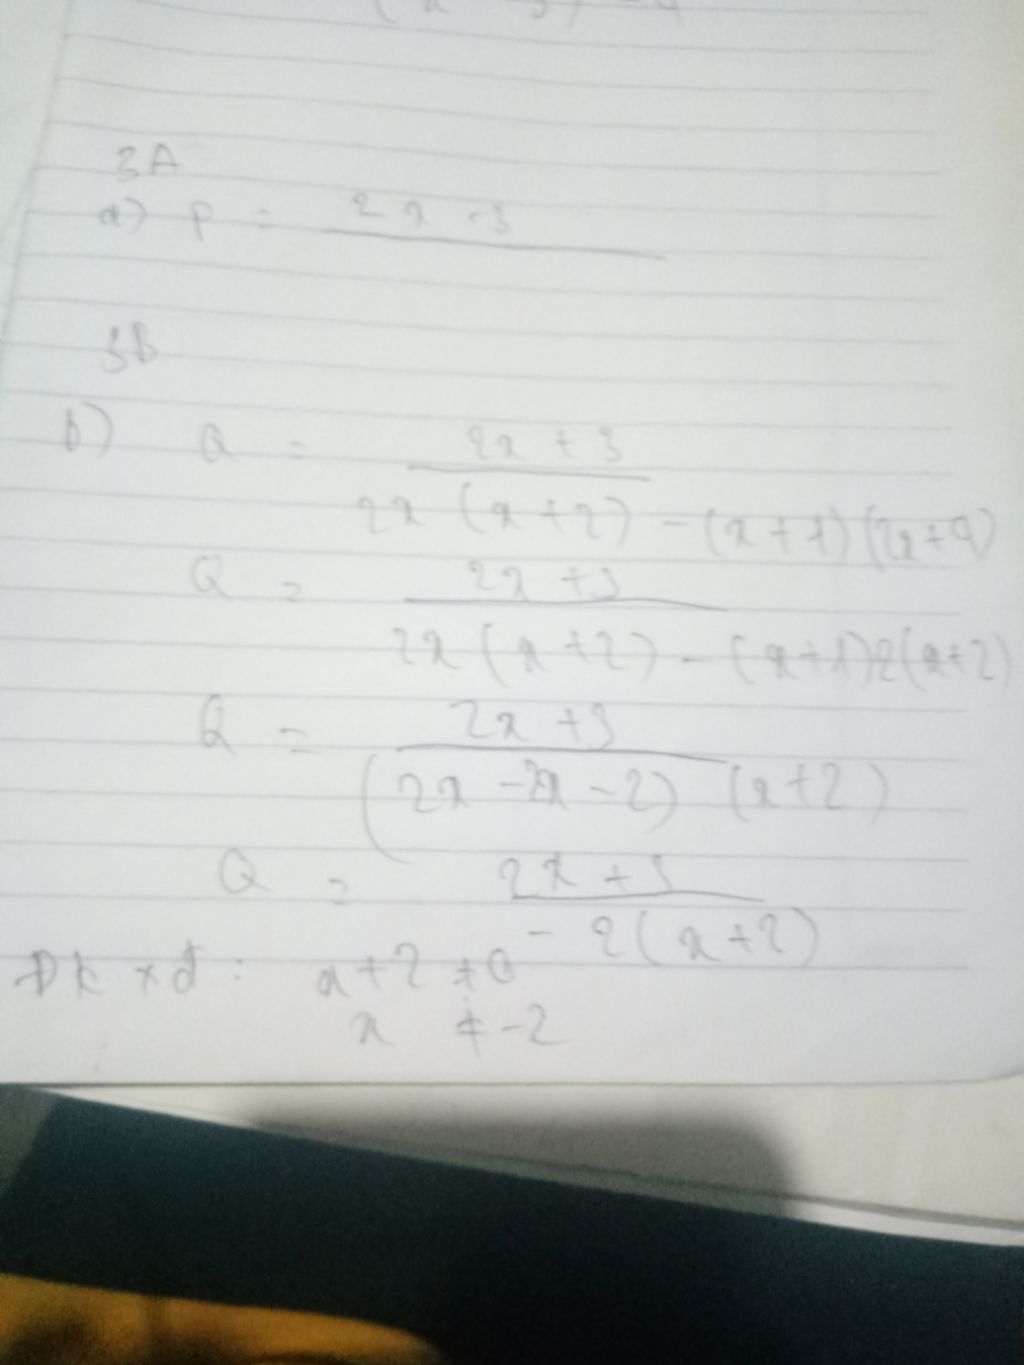 3A
a) P = 2x - 3
3B
b) Q = 2x + 3
2x (x + 2) - (x + 1) (2x + 4)
Q = 2x + 3
2x (x + 2) - (x + 1) 2(x + 2)
Q = 2x + 3
(2x - 2x - 2) (x + 2)
Q = 2x + 3
- 2 (x + 2)
ĐK xđ : x + 2 ≠ 0
x ≠ -2